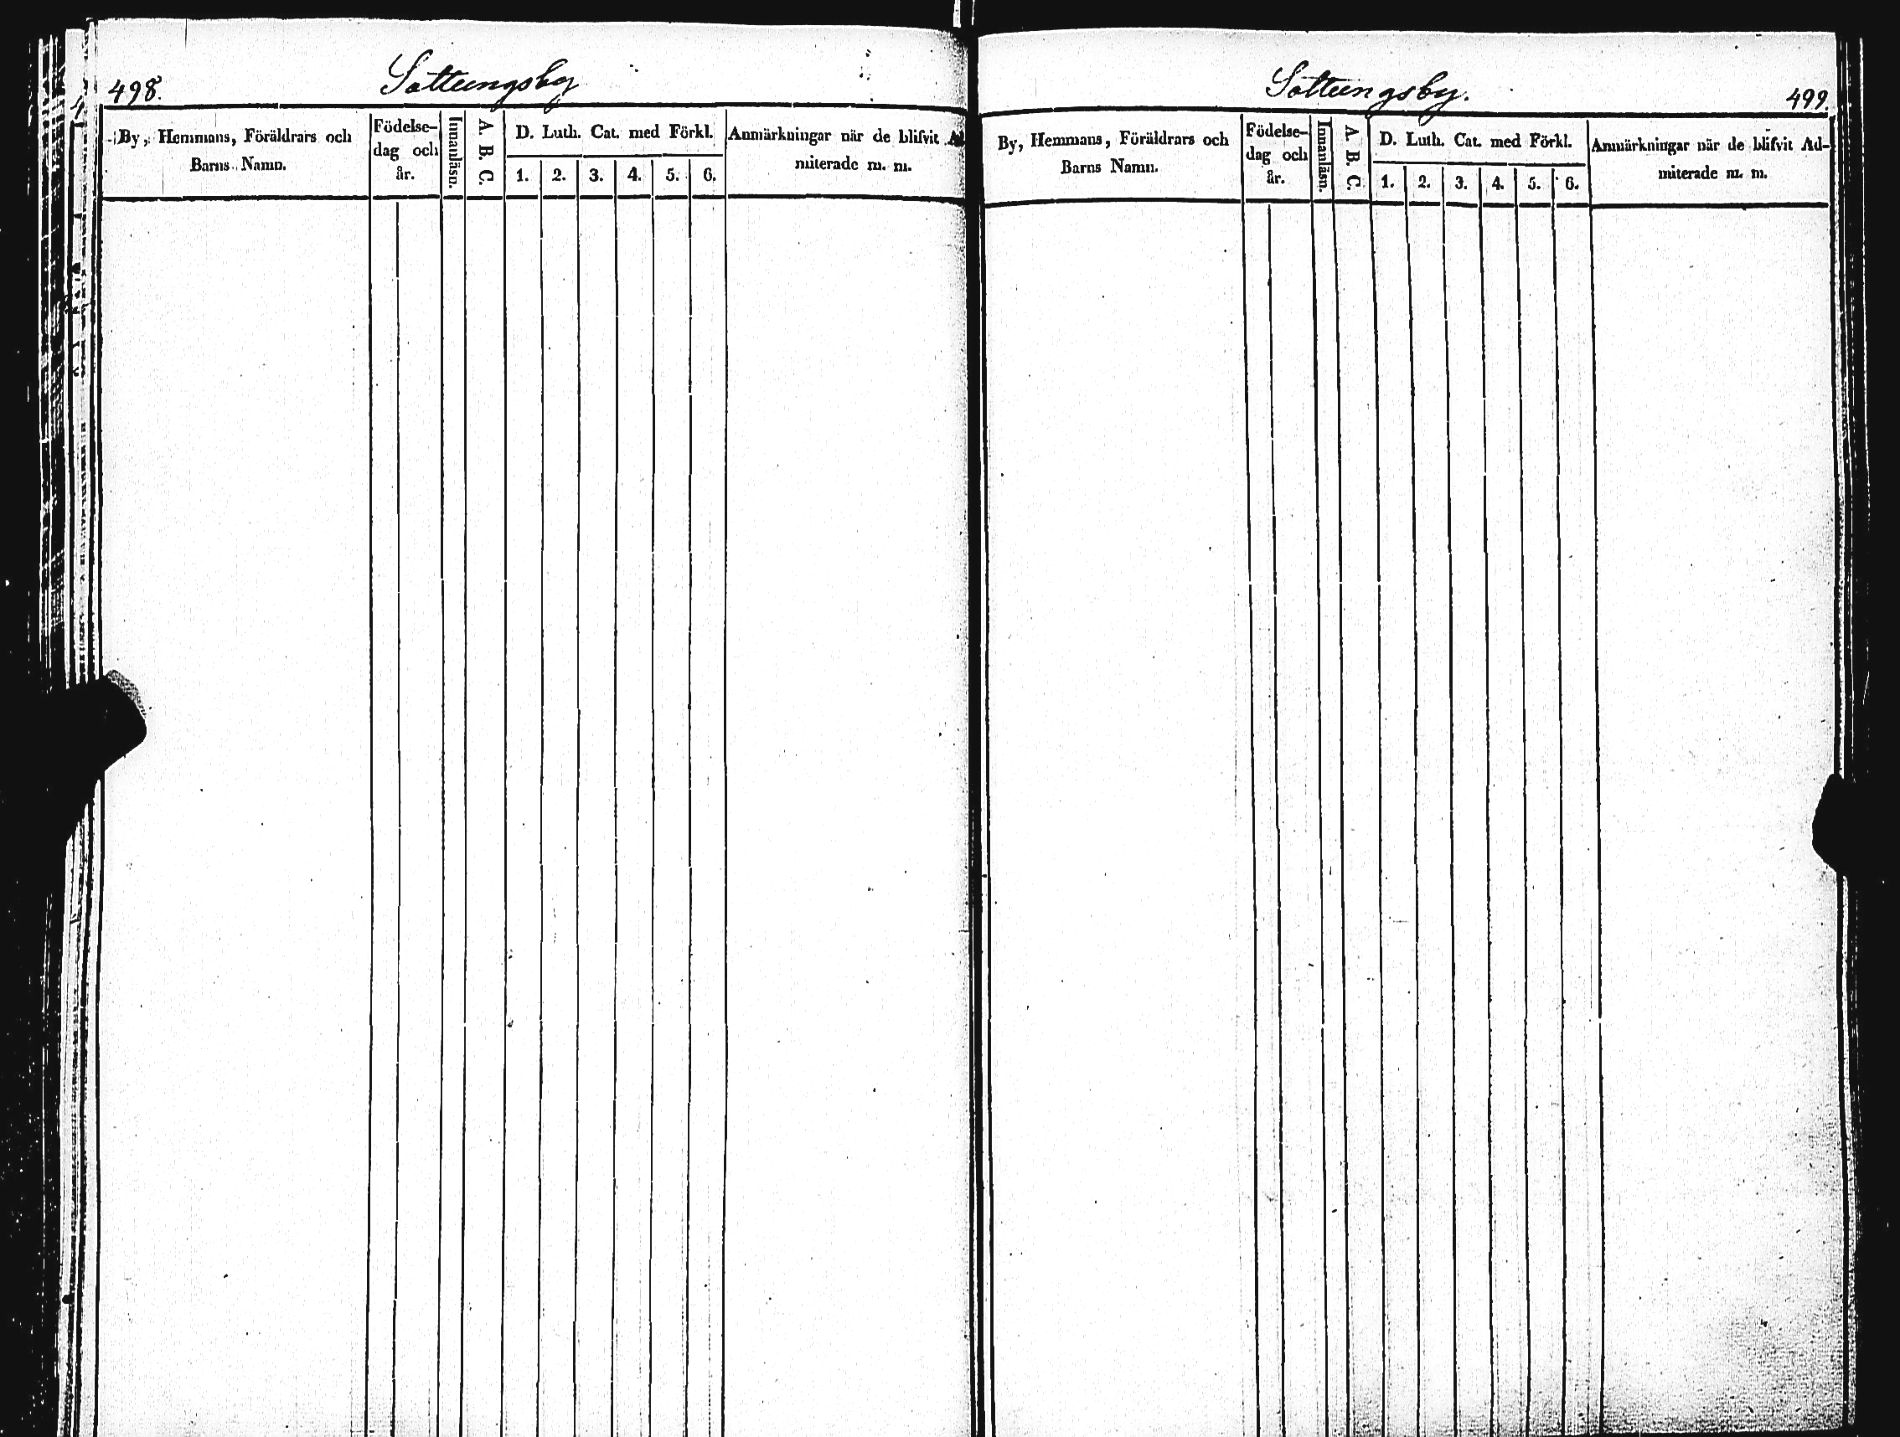 498.
Sottungsby
By, Hemmans, Föräldrars och
Barns Namn.
Födelse-
dag och
år.
Innanläsn.
A. B. C.
D. Luth. Cat. med Förkl.
1. 2. 3. 4. 5. 6.
Anmärkningar når de blifvit Ad
miterade m. m.
Sottungsby.
499.
By, Hemmans, Föräldrars och
Barns Namn.
Födelse-
dag och
år.
Innanläsn.
A. B. C.
D. Luth. Cat. med Förkl.
1. 2. 3. 4. 5. 6.
Anmärkningar når de blifvit Ad-
miterade m. m.